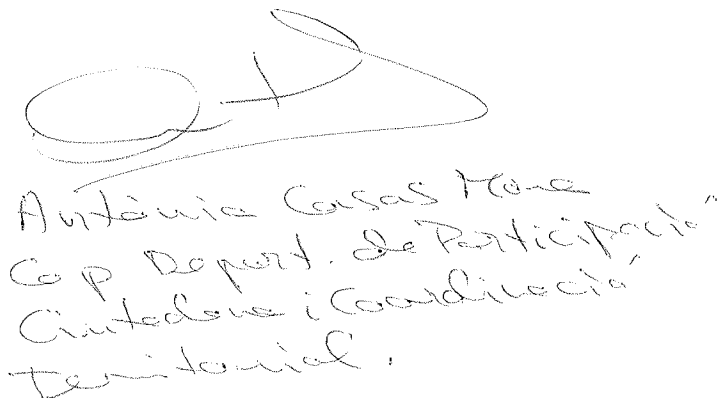 Antònia Casas More
Cap Depart. de Participació
Ciutadana i Coordinació
Territorial.